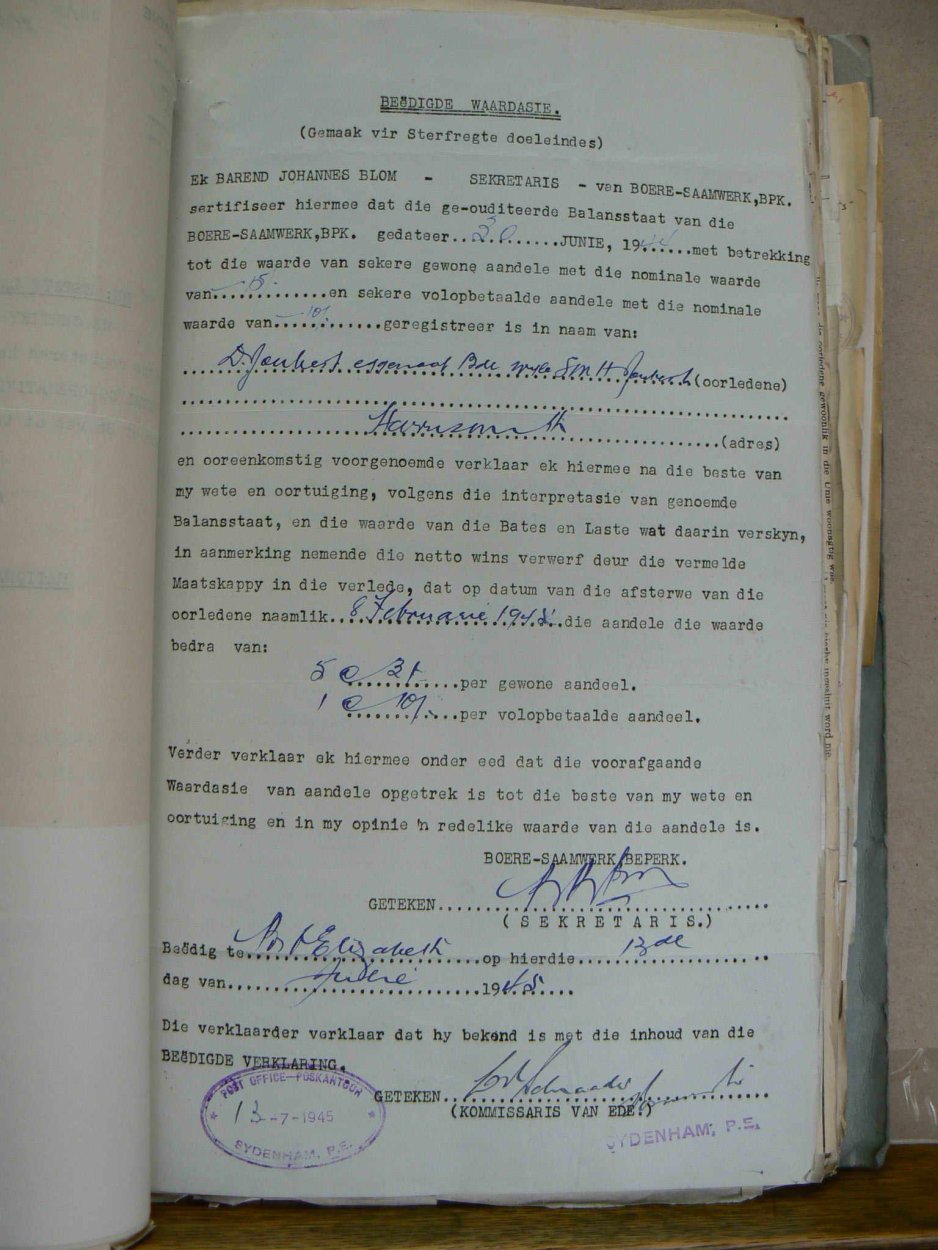 BEËDIGDE WAARDASIE.
(Gemaak vir Sterfregte doeleindes)
Ek BAREND JOHANNES BLOM - SEKRETARIS - van BOERE-SAAMWERK,BPK.
sertifiseer hiermee dat die ge-ouditeerde Balansstaat van die
BOERE-SAAMWERK,BPK. gedateer..30......JUNIE, 1944....met betrekking
tot die waarde van sekere gewone aandele met die nominale waarde
van.............en sekere volopbetaalde aandele met die nominale
waarde van...10/.........geregistreer is in naam van:
D. Joubert Bdl wyle S M H Joubert (oorledene)
Harrismith (adres)
en ooreenkomstig voorgenoemde verklaar ek hiermee na die beste van
my wete en oortuiging, volgens die interpretasie van genoemde
Balansstaat, en die waarde van die Bates en Laste wat daarin verskyn,
in aanmerking nemende die netto wins verwerf deur die vermelde
Maatskappy in die verlede, dat op datum van die afsterwe van die
oorledene naamlik..8 Februarie 1945..die aandele die waarde
bedra van:
5 @ .......per gewone aandeel.
1 @ 10/.....per volopbetaalde aandeel.
Verder verklaar ek hiermee onder eed dat die voorafgaande
Waardasie van aandele opgetrek is tot die beste van my wete en
oortuiging en in my opinie 'n redelike waarde van die aandele is.
BOERE-SAAMWERK BEPERK.
GETEKEN..............................
(SEKRETARIS.)
Beëdig te Port Elizabeth...op hierdie...13de
dag van......Julie........1945....
Die verklaarder verklaar dat hy bekend is met die inhoud van die
BEËDIGDE VERKLARING.
GETEKEN..............................
(KOMMISSARIS VAN EDE.)
POST OFFICE-POSKANTOOR
13-7-1945
SYDENHAM, P.E.
SYDENHAM, P.E.